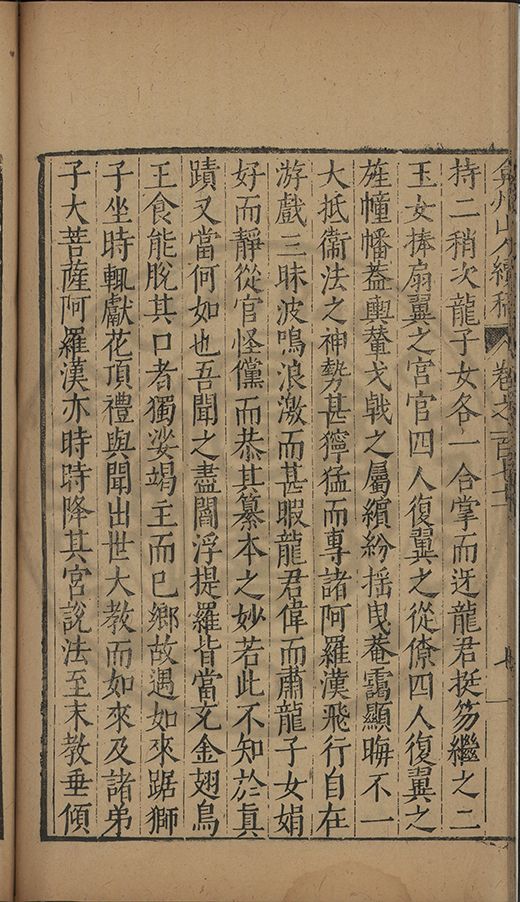 弇州山人續稿 卷之一百七十二
持二稍次龍子女各一合掌而迓龍君挺笏繼之二
玉女捧扇翼之宮官四人復翼之從僚四人復翼之
旌幢幡葢輿輦戈戟之屬繽紛揺曳菴靄顯晦不一
大抵衞法之神勢甚獰猛而專諸阿羅漢飛行自在
游戲三昧波鳴浪激而甚暇龍君偉而肅龍子女娟
好而靜從官怪儻而恭其纂本之妙若此不知於真
蹟又當何如也吾聞之盡閻浮提羅皆當充金翅鳥
王食能脫其口者獨娑竭主而已鄉故遇如來踞獅
子坐時輒獻花頂禮與聞出世大教而如來及諸弟
子大菩薩阿羅漢亦時時降其宮說法至末教垂傾